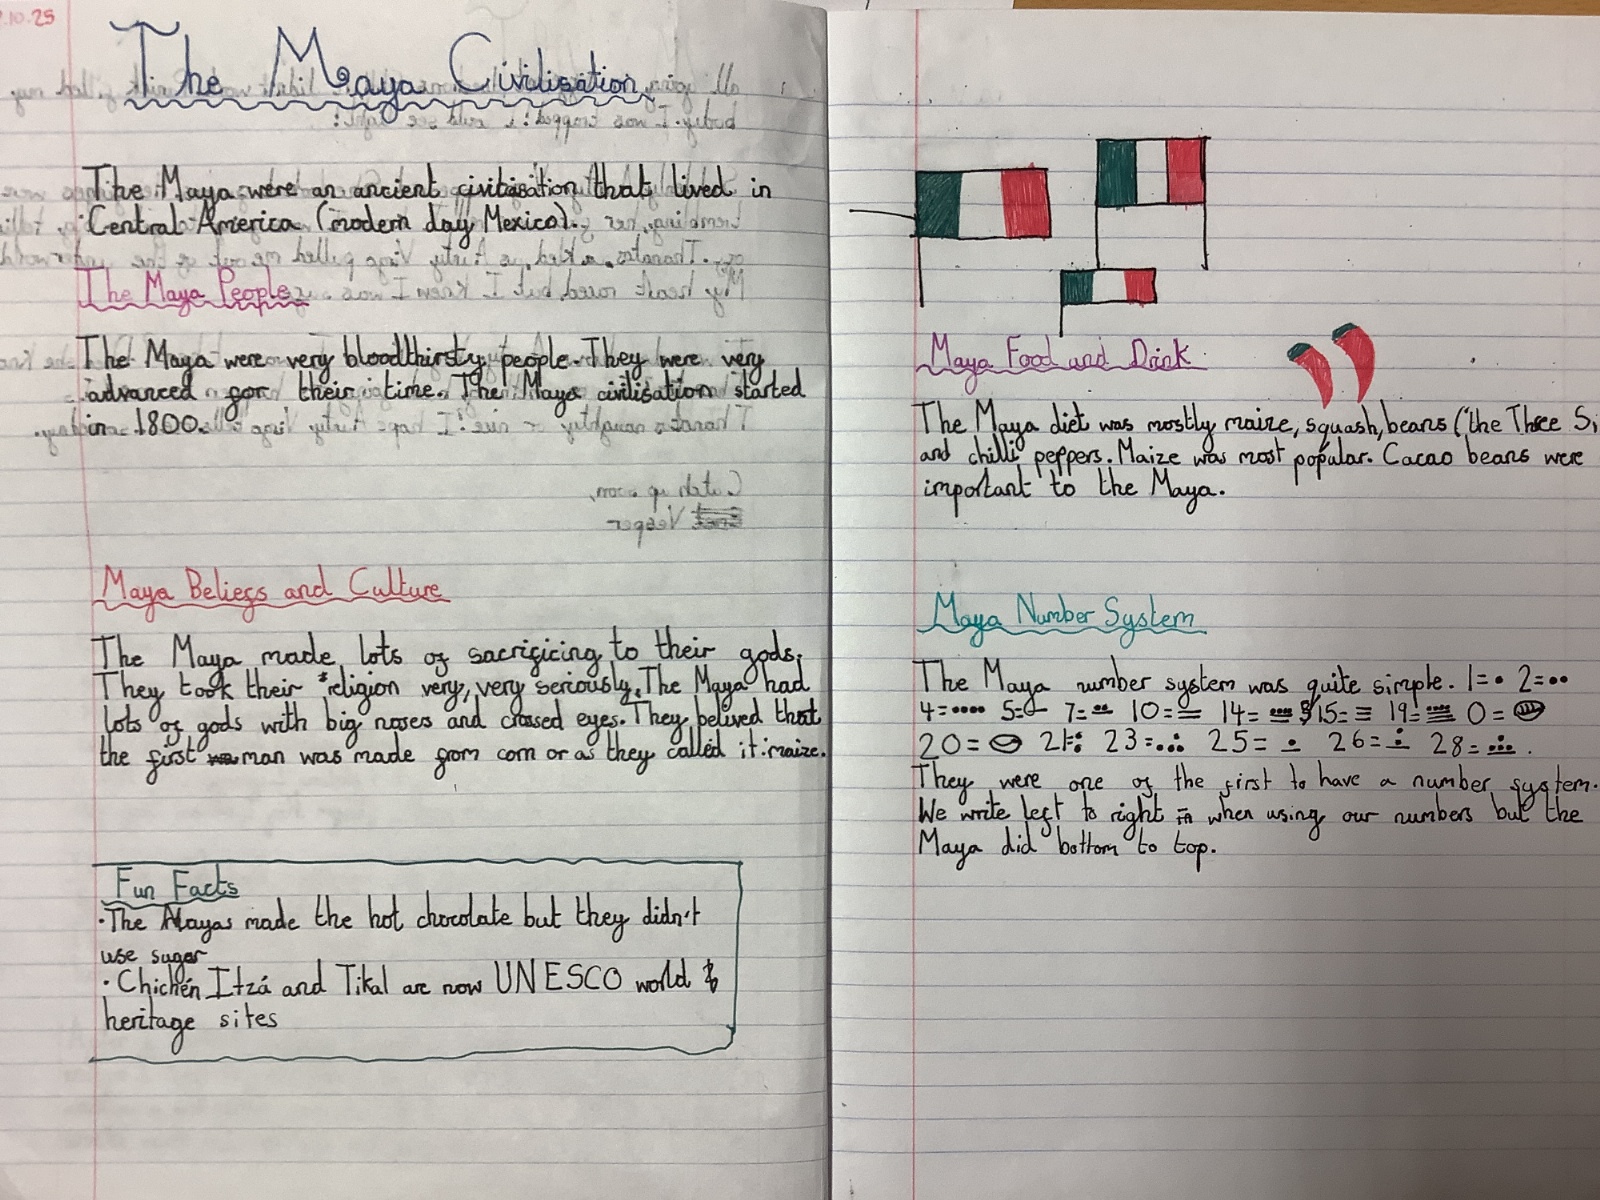 .10.25
The Maya Civilisation
The Maya were an ancient civilisation that lived in
Central America (modern day Mexico).
The Maya People
The Maya were very bloodthirsty people. They were very
advanced for their time. The Maya civilisation started
in 1800.
Maya Beliefs and Culture
The Maya made lots of sacrificing to their gods.
They took their religion very, very seriously. The Maya had
lots of gods with big noses and crossed eyes. They belived that
the first man was made from corn or as they called it: maize.
Fun Facts
• The Mayas made the hot chocolate but they didn't
use sugar
• Chichén Itzá and Tikal are now UNESCO world
heritage sites
Maya Food and Drink
The Maya diet was mostly maize, squash, beans ("the Three
and chilli peppers. Maize was most popular. Cacao beans were
important to the Maya.
Maya Number System
The Maya number system was quite simple. 1= • 2= ••
4= •••• 5= 7= 10= 14= 15= 19= 0=
20= 21= 23= 25= 26= 28= .
They were one of the first to have a number system.
We write left to right when using our numbers but the
Maya did bottom to top.